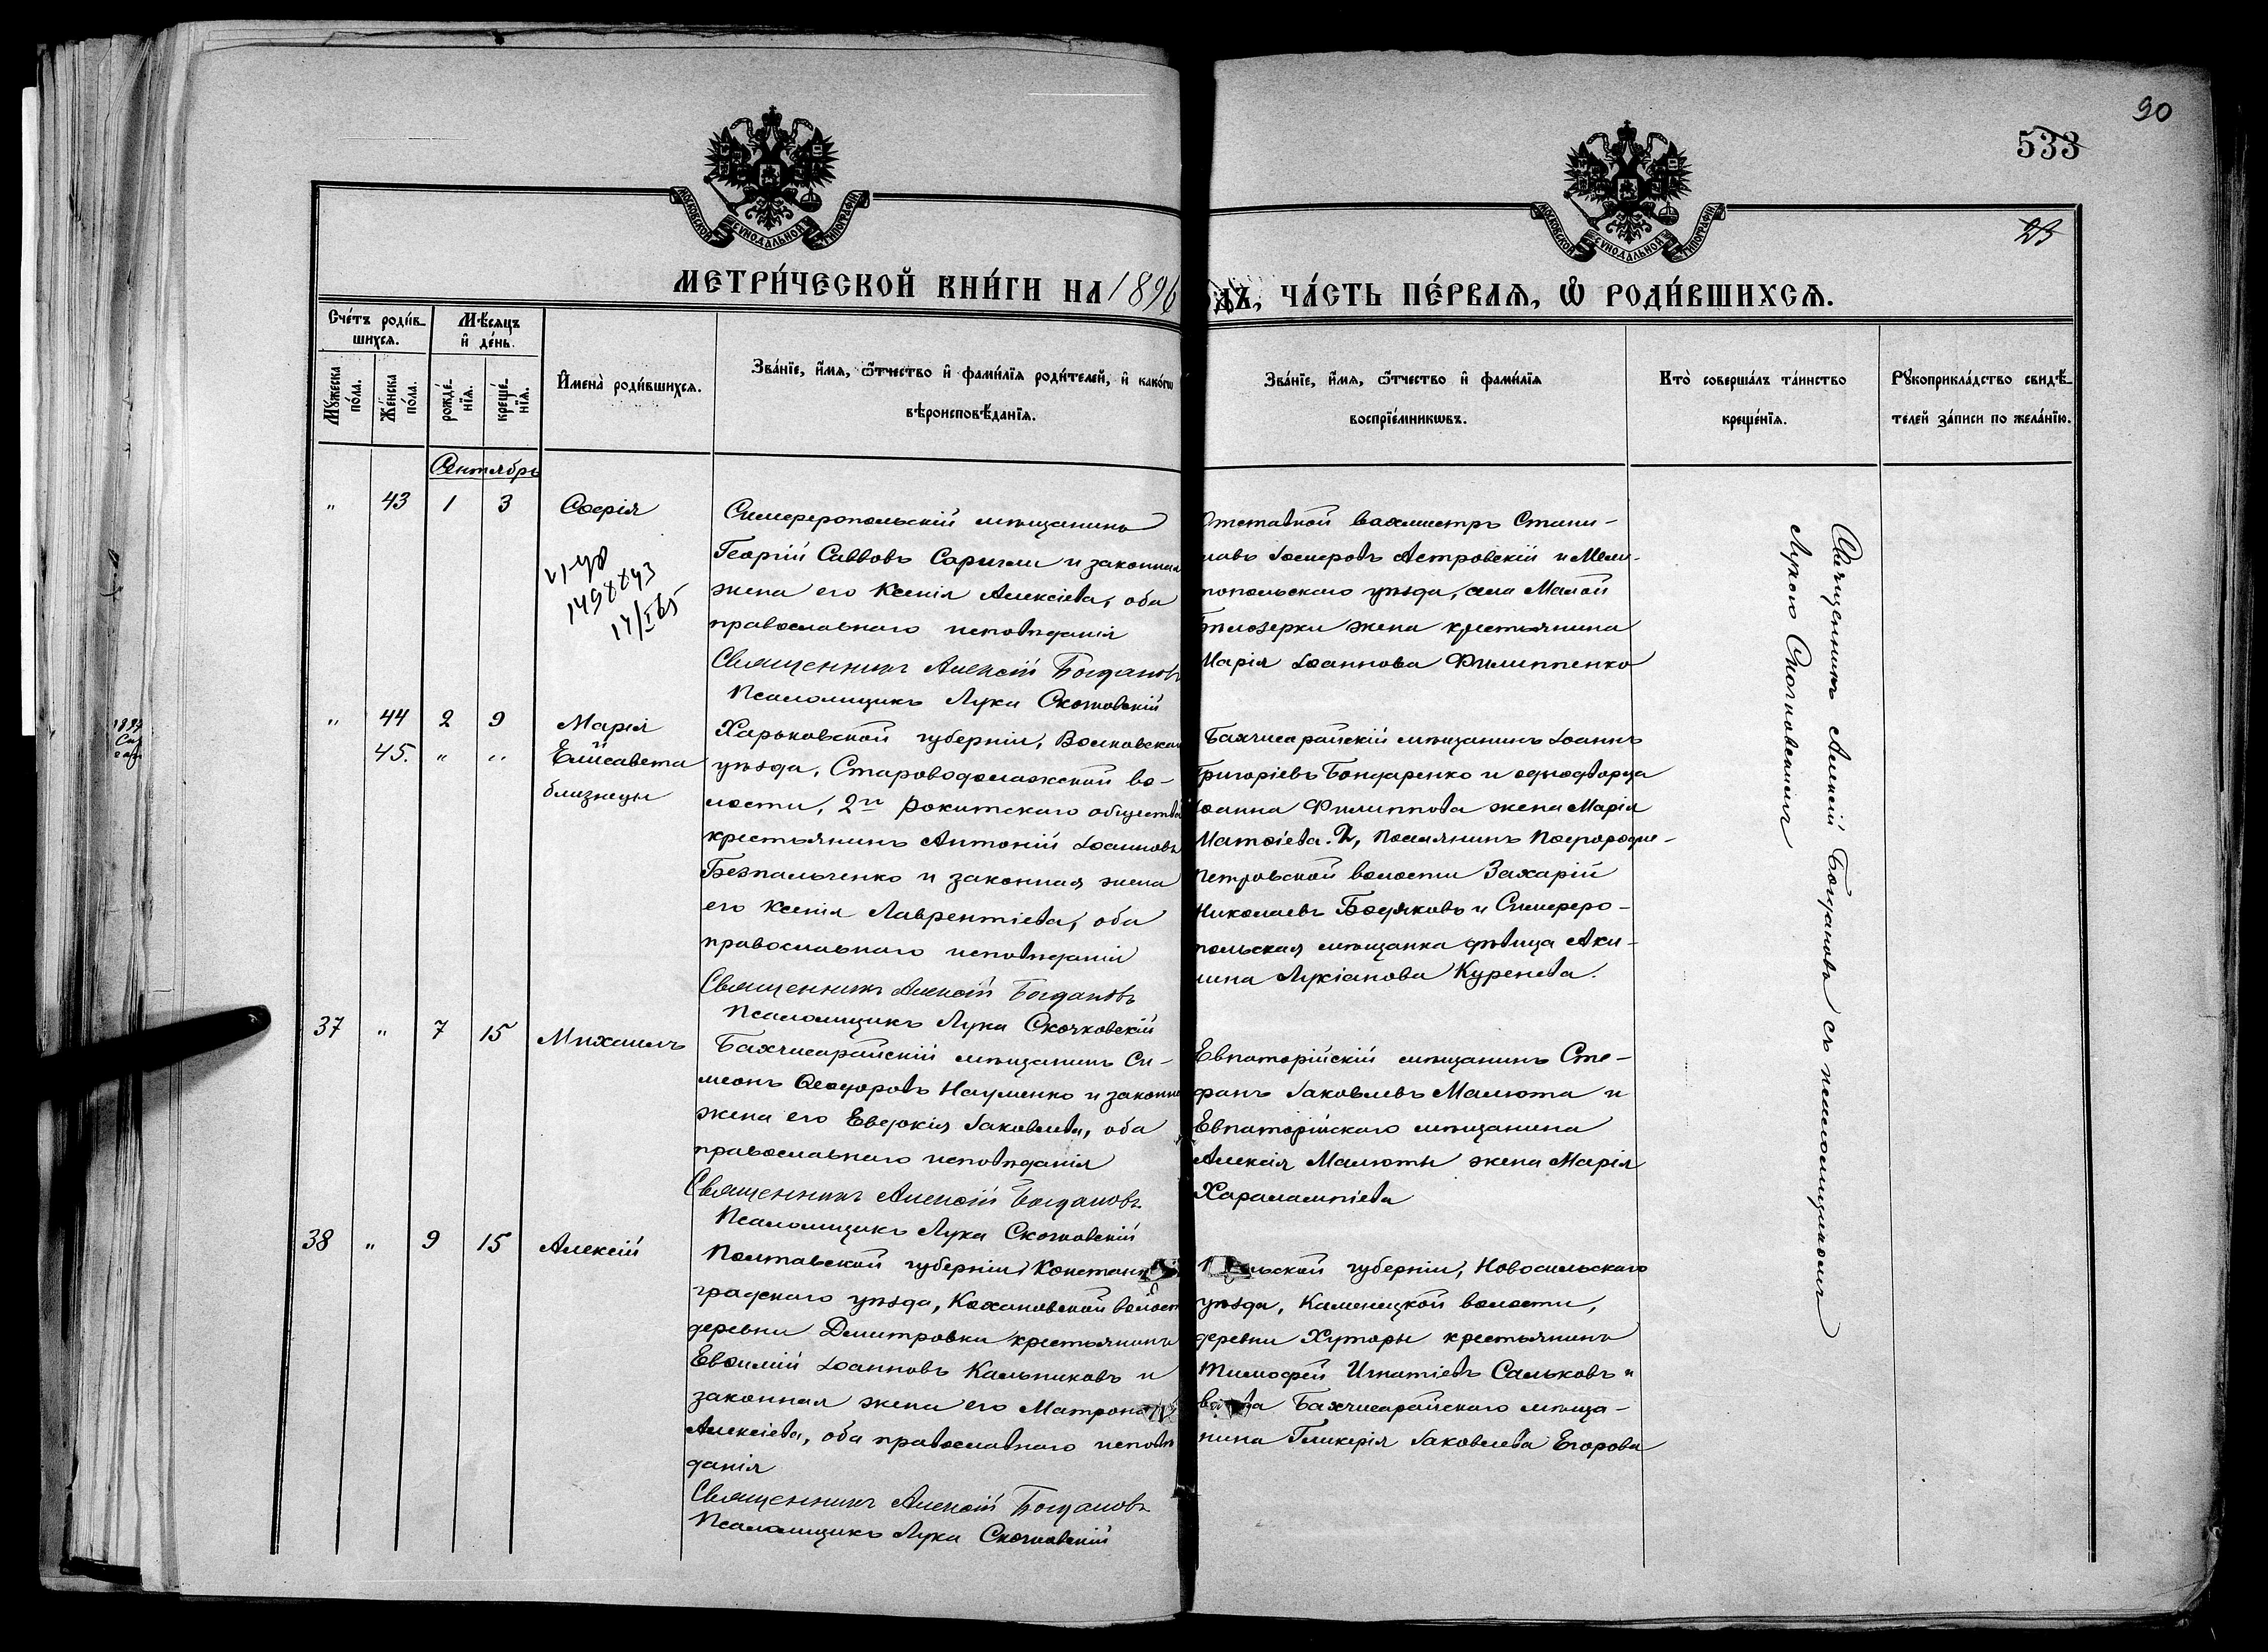 90
533
23
МОСКОВСКОЙ СУНОДАЛЬНОЙ ТИПОГРАФІИ
МОСКОВСКОЙ СУНОДАЛЬНОЙ ТИПОГРАФІИ
МЕТРИ́ЧЕСКОЙ КНИ́ГИ НА 1896
ДЪ, ЧА́СТЬ ПЕ́РВАѦ, Ѡ РОДИ́ВШИХСѦ.
Сче́тъ роди́в-
шихсѧ.
Мѣ́сѧцъ
и҆ де́нь.
Мꙋ́жеска
по́ла.
Же́нска
по́ла.
рожде́-
нїѧ.
креще́-
нїѧ.
И҆мена̀ роди́вшихсѧ.
Зва́нїе, и҆́мѧ, ѻ҆́тчество и҆ фами́лїѧ роди́телей, и҆ како́гѡ
вѣроисповѣ́данїѧ.
Зва́нїе, и҆́мѧ, ѻ҆́тчество и҆ фами́лїѧ
воспрїе́мникѡвъ.
Кто̀ соверша́лъ та́инство
креще́нїѧ.
Рꙋкоприкла́дство свидѣ́-
телей за́писи по жела́нїю.
Сентябрь
" 43 1 3 Софія
Симферопольскій мѣщанинъ
Георгій Савовъ Саригли и законная
жена его Ксенія Алексіева, оба
православнаго исповѣданія
Священникъ Алексій Богдановъ
Псаломщикъ Лука Скочковскій
Отставной вахмистръ Стани-
славъ Іосифовъ Астровскій и Мели-
топольскаго уѣзда, села Малой
Бѣлозерки жена крестьянина
Марія Іоаннова Филиппенко
" 44 2 9 Марія
45. " " Елисавета
близнецы
Харьковской губерніи, Волковскаго
уѣзда, Староводолажской во-
лости, 2го Рокитскаго общества
крестьянинъ Антоній Іоанновъ
Безпальченко и законная жена
его Ксенія Лаврентіева, оба
православнаго исповѣданія
Священникъ Алексій Богдановъ
Псаломщикъ Лука Скочковскій
Бахчисарайскій мѣщанинъ Іоаннъ
Григоріевъ Бондаренко и однодворца
Іоанна Филиппова жена Марія
Матѳіева. 2, Поселянинъ Погородне-
Петровской волости Захарій
Николаевъ Бодяковъ и Симферо-
польская мѣщанка дѣвица Аки-
лина Лукіанова Куренева.
37 " 7 15 Михаилъ
Бахчисарайскій мѣщанинъ Си-
меонъ Ѳеодоровъ Науменко и законная
жена его Евдокія Іаковлева, оба
православнаго исповѣданія
Священникъ Алексій Богдановъ
Псаломщикъ Лука Скочковскій
Евпаторійскій мѣщанинъ Сте-
фанъ Іаковлевъ Малюта и
Евпаторійскаго мѣщанина
Алексія Малюты жена Марія
Харалампіева
38 " 9 15 Алексій
Полтавской губерніи, Констант
градскаго уѣзда, Кохановской волости
деревни Дмитровки крестьянинъ
Евѳимій Іоанновъ Кальниковъ и
законная жена его Матрона
Алексіева, оба православнаго исповѣ
данія
Священникъ Алексій Богдановъ
Псаломщикъ Лука Скочковскій
Тульской губерніи, Новосильскаго
уѣзда, Каменецкой волости,
деревни Хуторы крестьянинъ
Тимофей Игнатіевъ Сальковъ и
вдова Бахчисарайскаго мѣща-
нина Гликерія Іаковлева Егорова
Священникъ Алексій Богдановъ съ псаломщикомъ
Лукою Скочковскимъ